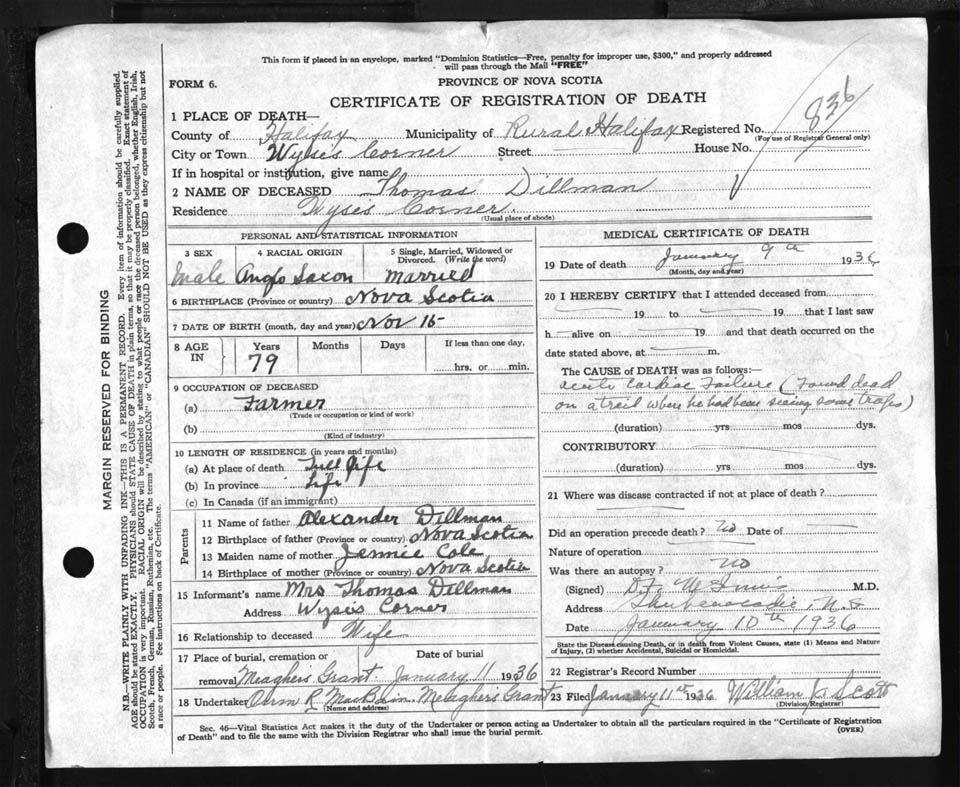 This form if placed in an envelope, marked "Dominion Statistics—Free, penalty for improper use, $300," and properly addressed
will pass through the Mail "FREE"
FORM 6.
PROVINCE OF NOVA SCOTIA
CERTIFICATE OF REGISTRATION OF DEATH
836
1 PLACE OF DEATH—
County of Halifax Municipality of Rural Halifax Registered No.
(For use of Registrar General only)
City or Town Wyses Corner Street House No.
If in hospital or institution, give name
2 NAME OF DECEASED Thomas Dillman
Residence Wyses Corner
(Usual place of abode)
PERSONAL AND STATISTICAL INFORMATION
3 SEX 4 RACIAL ORIGIN 5 Single, Married, Widowed or
Divorced. (Write the word)
Male Anglo Saxon Married
6 BIRTHPLACE (Province or country) Nova Scotia
7 DATE OF BIRTH (month, day and year) Nov 15
8 AGE IN Years Months Days If less than one day,
79 hrs. or min.
9 OCCUPATION OF DECEASED
(a) Farmer
(Trade or occupation or kind of work)
(b)
(Kind of industry)
10 LENGTH OF RESIDENCE (in years and months)
(a) At place of death Full life
(b) In province Life
(c) In Canada (if an immigrant)
Parents
11 Name of father Alexander Dillman
12 Birthplace of father (Province or country) Nova Scotia
13 Maiden name of mother Jennie Cole
14 Birthplace of mother (Province or country) Nova Scotia
15 Informant's name Mrs Thomas Dillman
Address Wyses Corner
16 Relationship to deceased Wife
17 Place of burial, cremation or Date of burial
removal Meaghers Grant January 11 1936
18 Undertaker R Meaghers Grant
(Name and address)
MEDICAL CERTIFICATE OF DEATH
19 Date of death January 9th 1936
(Month, day and year)
20 I HEREBY CERTIFY that I attended deceased from
19 to 19 that I last saw
h alive on 19 and that death occurred on the
date stated above, at m.
The CAUSE of DEATH was as follows:—
acute Cardiac Failure (Found dead
on a trail where he had been some traps)
(duration) yrs mos dys.
CONTRIBUTORY
(duration) yrs mos dys.
21 Where was disease contracted if not at place of death?
Did an operation precede death? No Date of
Nature of operation
Was there an autopsy? No
(Signed) M.D.
Address Shubenacadie, N.S
Date January 10th 1936
State the Disease causing Death, or in death from Violent Causes, state (1) Means and Nature
of Injury, (2) whether Accidental, Suicidal or Homicidal.
22 Registrar's Record Number
23 Filed January 11th 1936 William J. Scott
(Division Registrar)
Sec. 46—Vital Statistics Act makes it the duty of the Undertaker or person acting as Undertaker to obtain all the particulars required in the "Certificate of Registration
of Death" and to file the same with the Division Registrar who shall issue the burial permit.
(OVER)
MARGIN RESERVED FOR BINDING
N.B.—WRITE PLAINLY WITH UNFADING INK—THIS IS A PERMANENT RECORD. Every item of information should be carefully supplied.
AGE should be stated EXACTLY. PHYSICIANS should STATE CAUSE OF DEATH in plain terms, so that it may be properly classified. Exact statement of
OCCUPATION is very important. RACIAL ORIGIN will be described by stating to what people or race the deceased person belonged, whether English, Irish,
Scotch, French, German, Russian, Ruthenian, etc. The terms "AMERICAN" or "CANADIAN" SHOULD NOT BE USED as they express citizenship but not
a race or people. See instructions on back of Certificate.